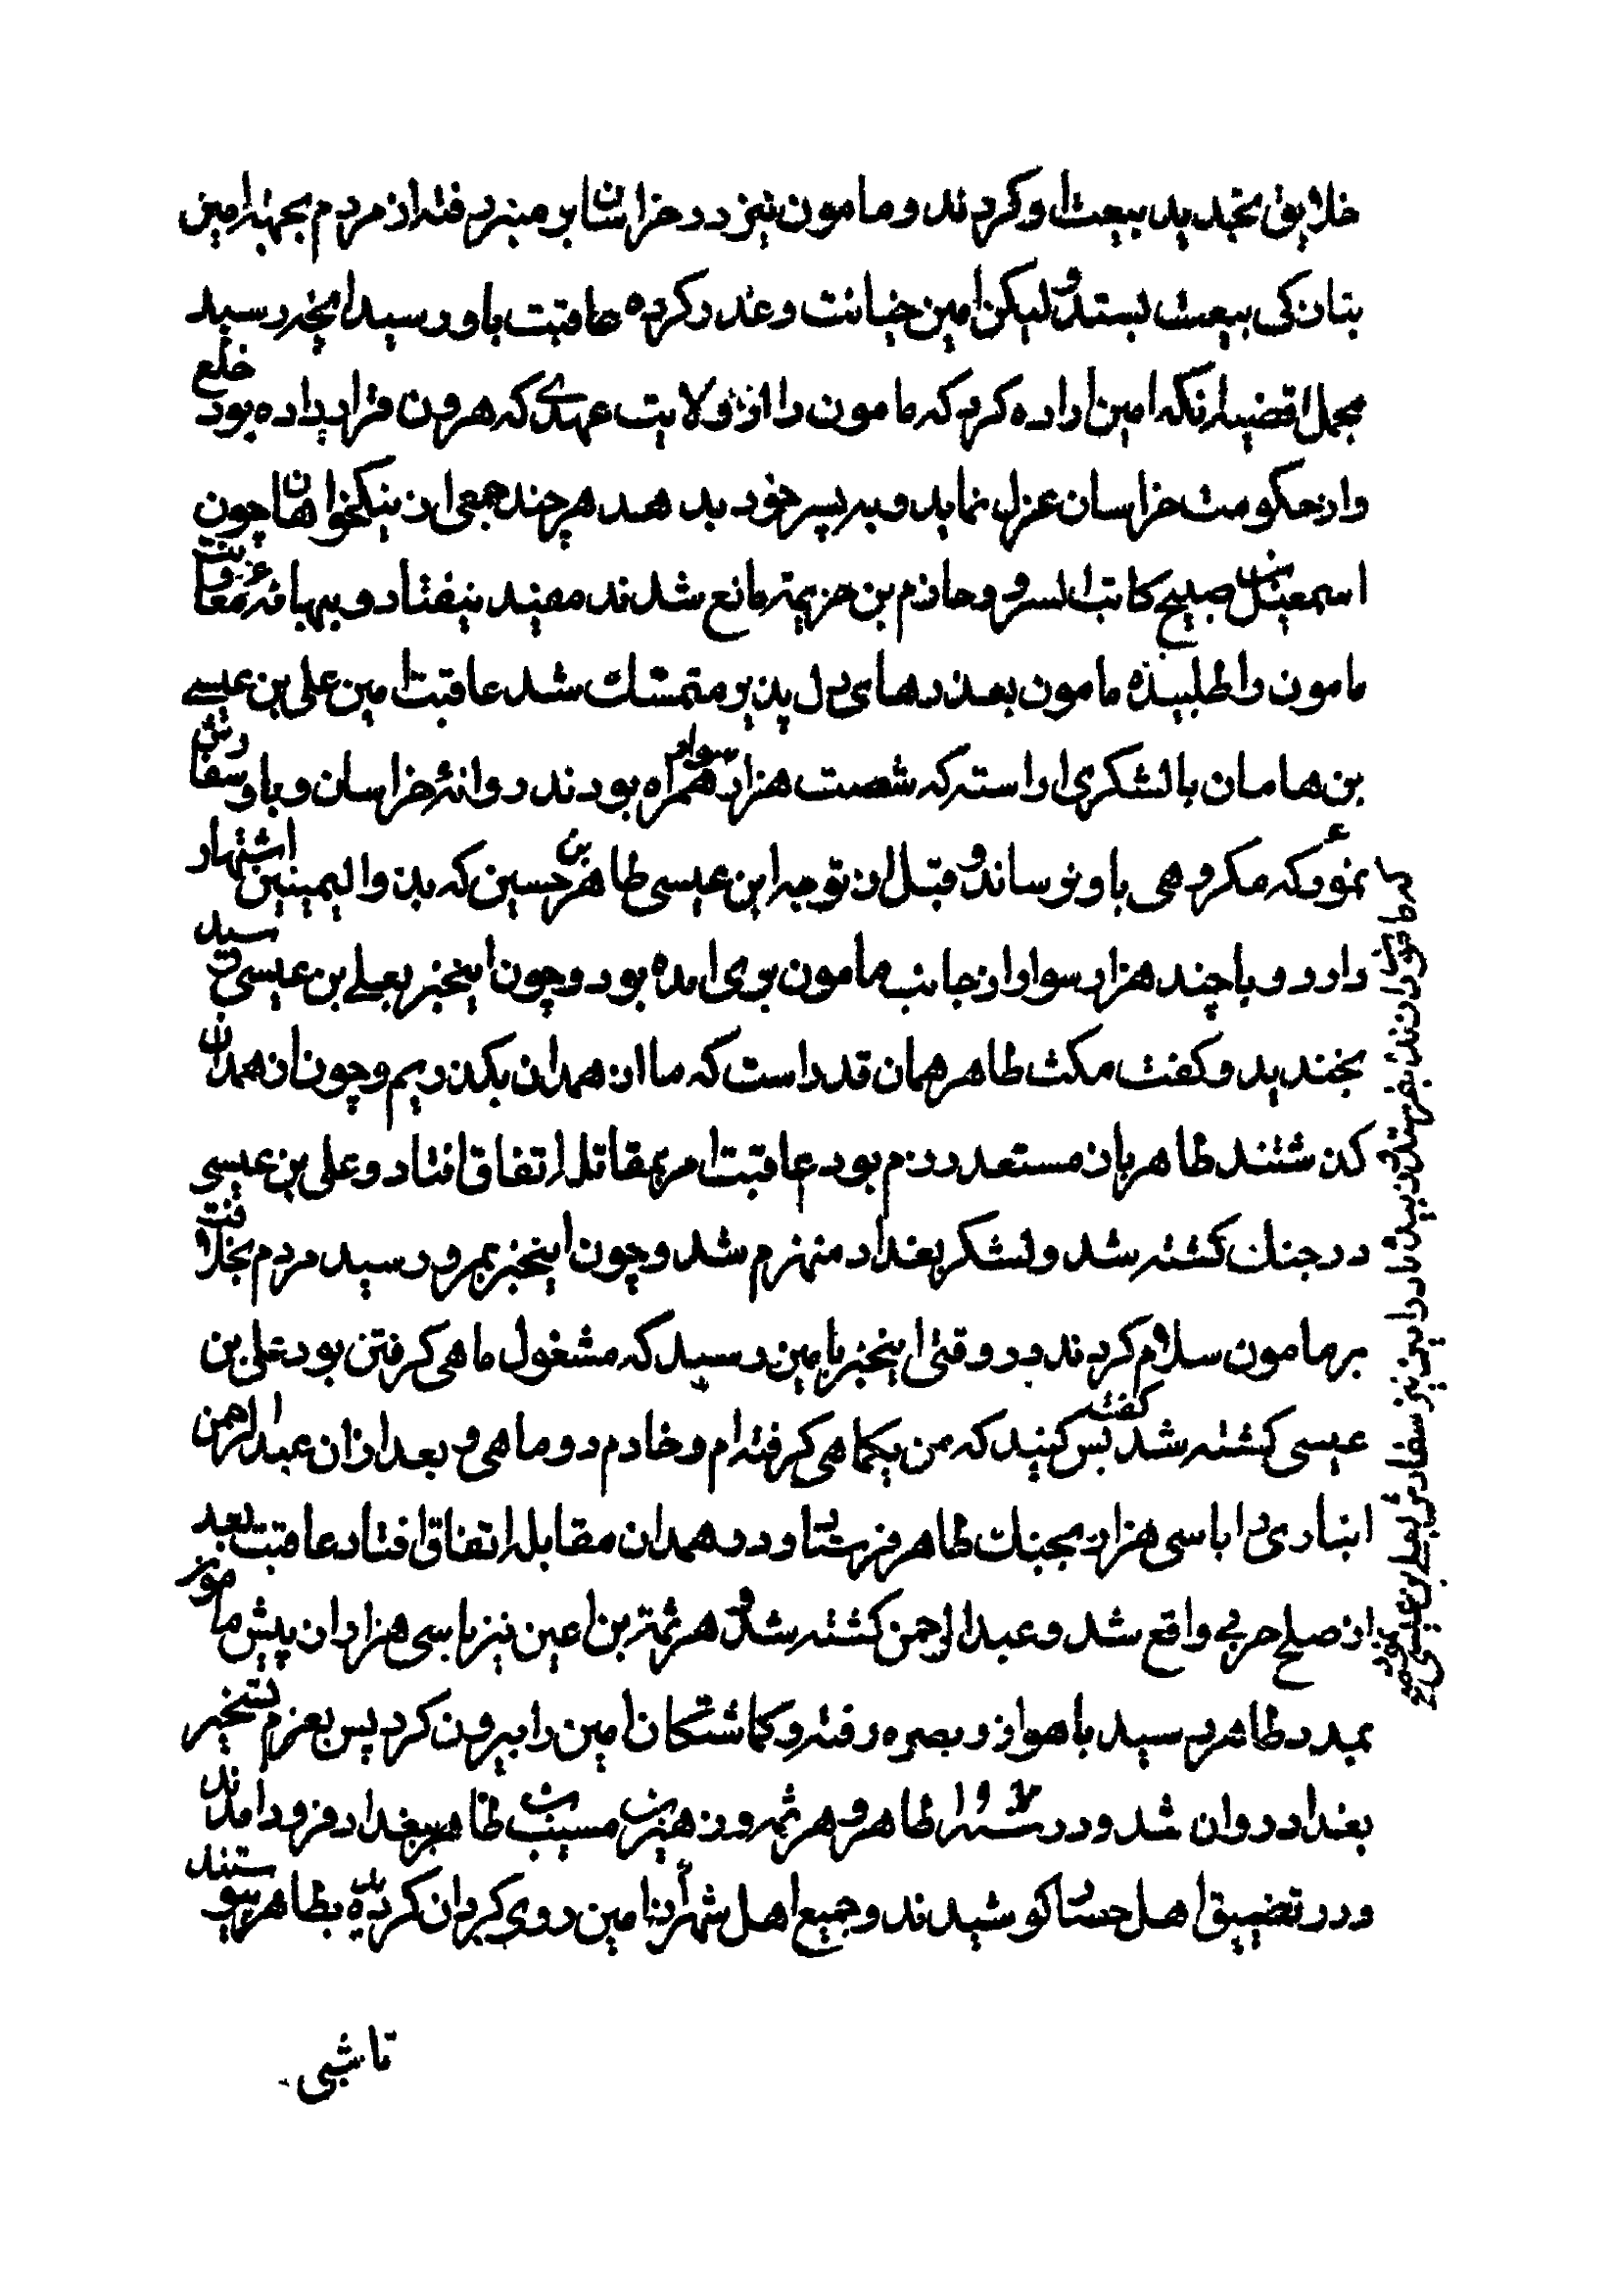 خلایق بتجدید بیعت او کردند و مامون نیز در خراسان بر منبر رفته از مردم بجهة امین
بتازکی بیعت بستد و لیکن امین خیانت و غدر کرده عاقبت باو رسید انچه رسید
مجمل قضیه انکه امین اراده کرد که مامون را از ولایت عهدی که هرون قرار داده بود خلع
و از حکومت خراسان عزل نماید و به پسر خود بدهد هر چند جمعی از نیکخواهان چون
اسمعیل بن صبیح کاتب السر و حازم بن خزیمه مانع شدند مفید نیفتاد و ببهانه معاونت
مامون را طلبیده مامون بعذرهای دل پذیر متمسک شد عاقبت امین علی بن عیسی
بن هامان با لشکری اراسته که شصت هزار سوار همراه بودند روانهٔ خراسان و باو سفارش
نمود که مکروهی باو نرساند و قبل از توجه ابن عیسی طاهر بن حسین که بذو الیمینین اشتهار
دارد و با چند هزار سوار از جانب مامون بری امده بود و چون اینخبر بعلی بن عیسی رسید
بخندید و کفت مکث طاهر همان قدر است که ما از همدان بکذریم و چون از همدان
کذشتند طاهر بان مستعد رزم بود عاقبت امر بمقاتله اتفاق افتاد و علی بن عیسی
در جنک کشته شد و لشکر بغداد منهزم شد و چون اینخبر بمرو رسید مردم بخلافت
بر مامون سلام کردند و در وقتی اینخبر بامین رسید که مشغول ماهی کرفتن بود علی بن
عیسی کشته شد کفته بس کنید که من یکماهی کرفته ام و خادم دو ماهی و بعد ازان عبد الرحمن
ابناری را با سی هزار بجنک طاهر فرستاد و در همدان مقابله اتفاق افتاد عاقبت بعد
از صلح حربی واقع شد و عبد الرحمن کشته شد و هرثمة بن اعین نیز با سی هزار از پیش مامون
بمدد طاهر رسید باهواز و بصره رفته و کماشتکان امین را بیرون کرد پس بعزم تسخیر
بغداد روان شد و در سنه طاهر و هرثمه و زهیر بن مسیب بظاهر بغداد فرود امدند
و در تضییق اهل حصار کوشیدند و جمیع اهل شهر از امین روی کردان کردیده بطاهر پیوستند
تا شبی